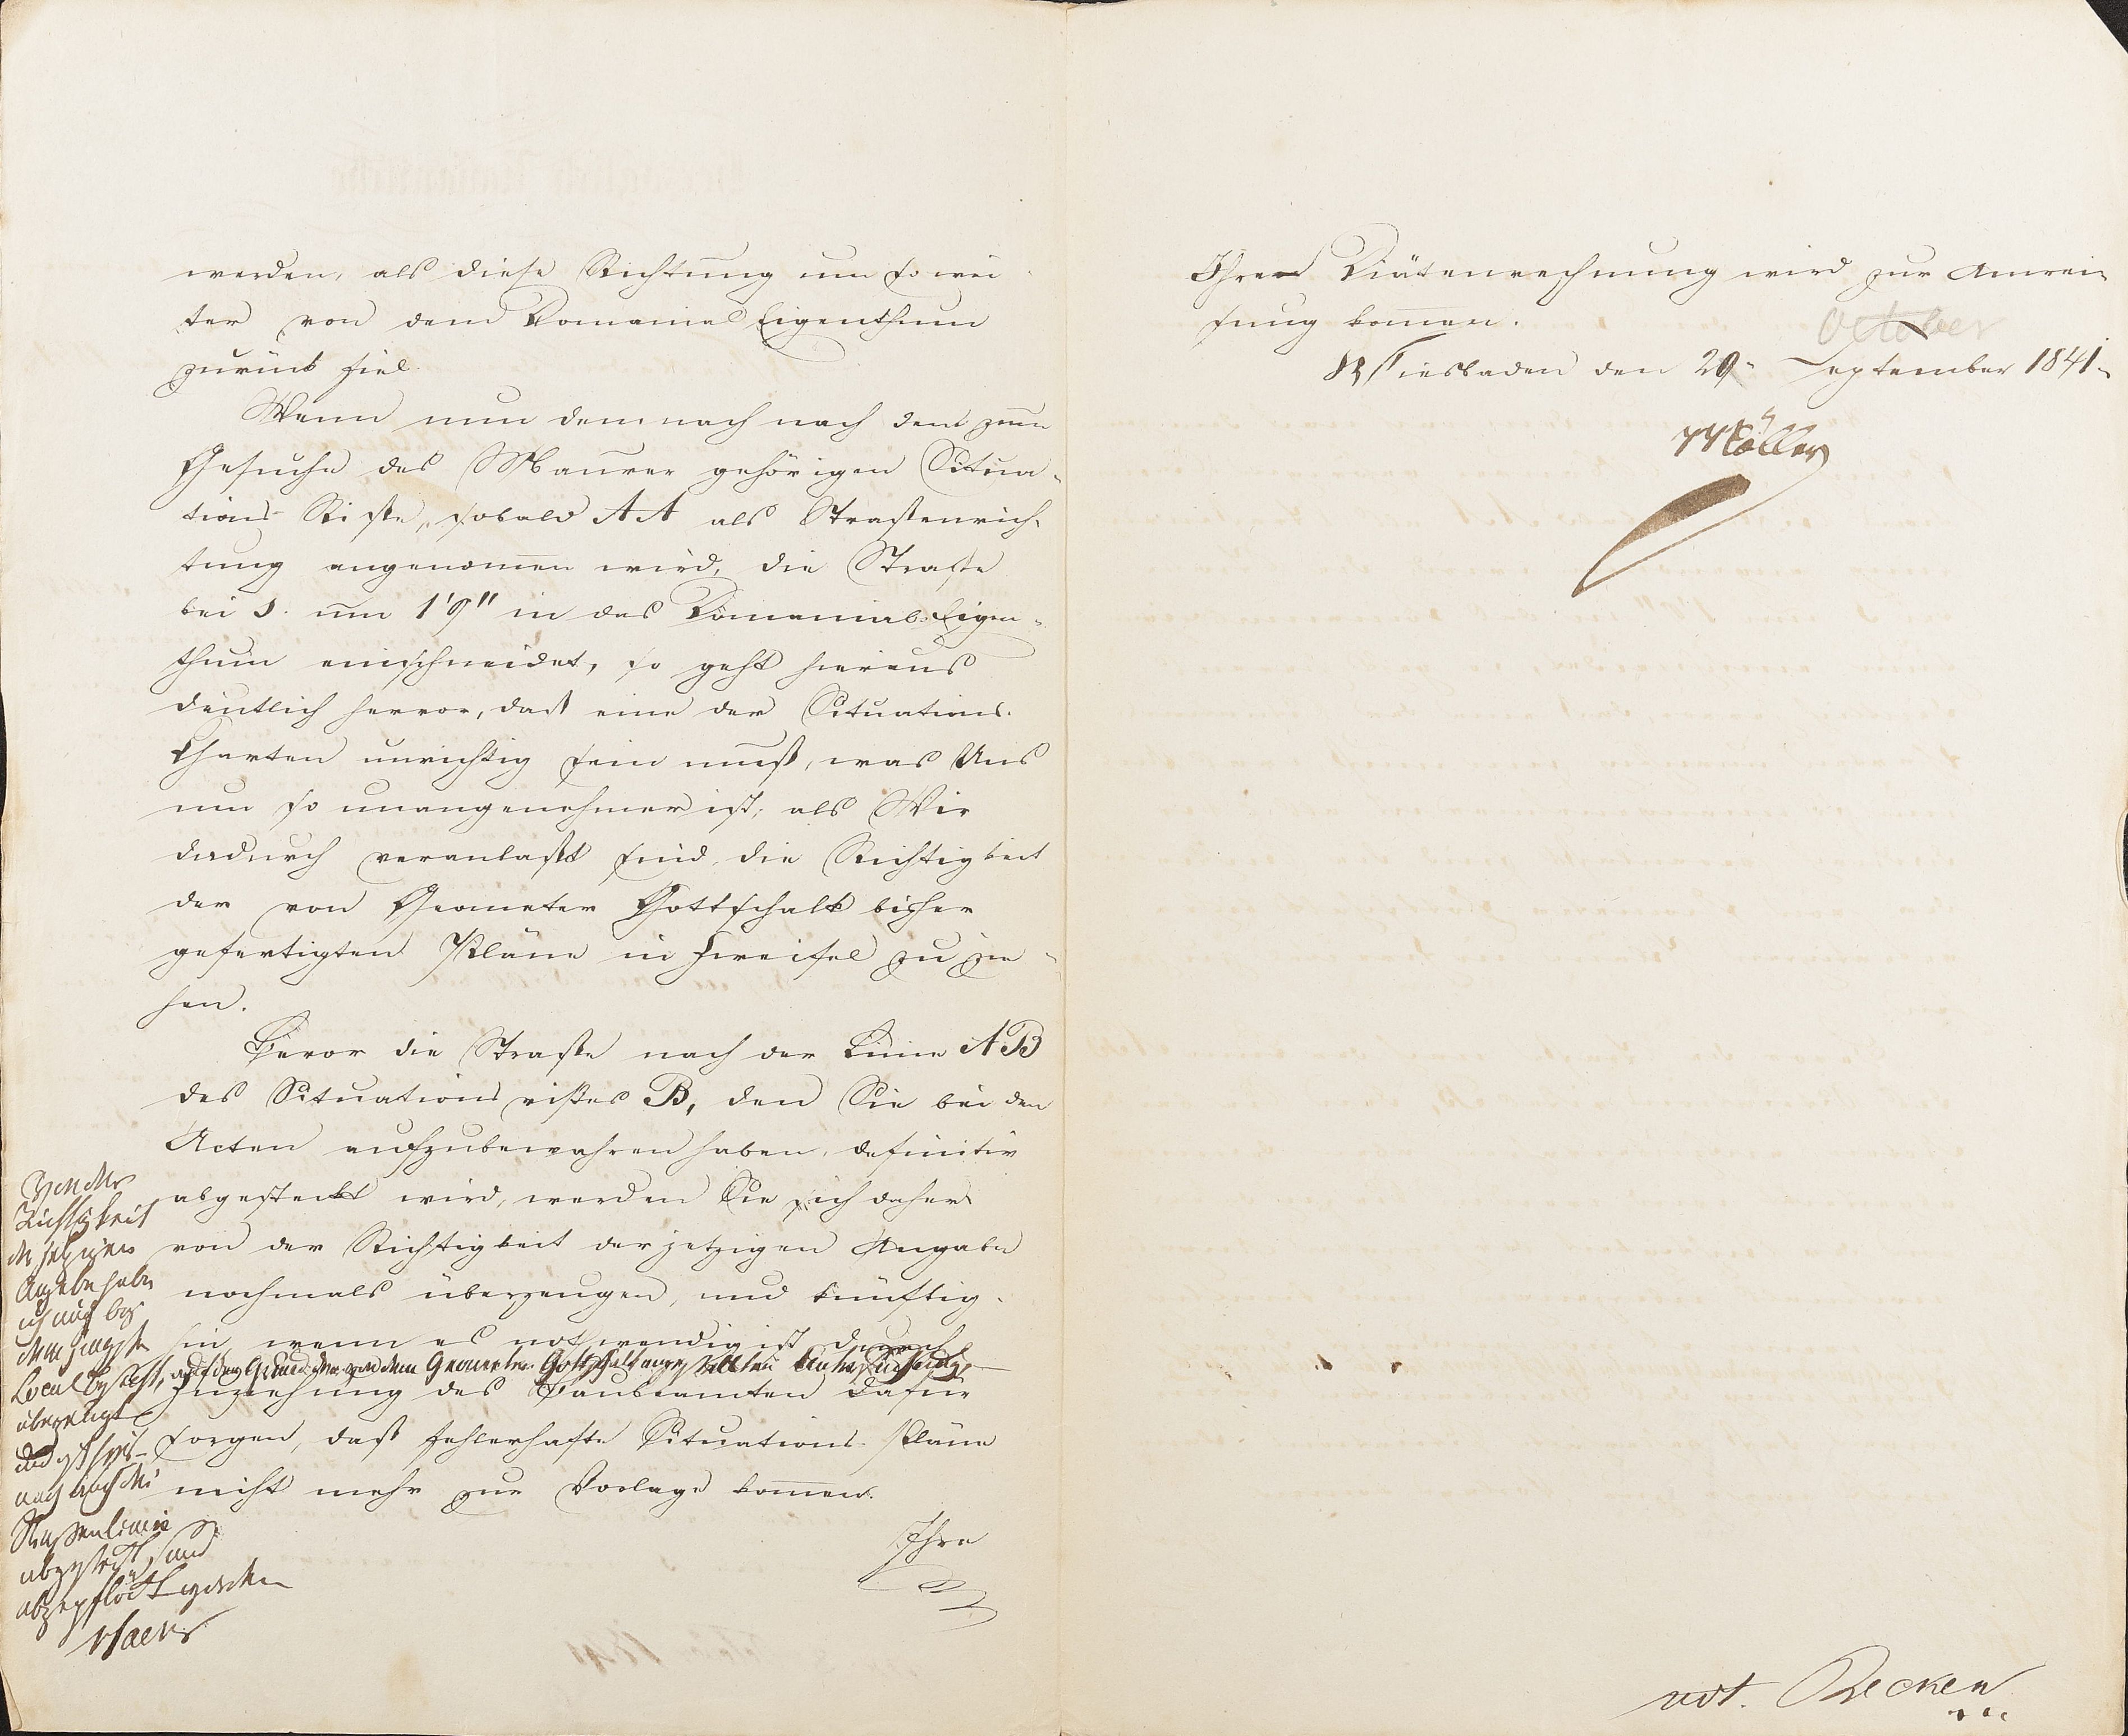 werden, als diese Richtung um so wei-
ter von dem Domanial Eigenthum
zurück fiel.
Wenn nun demnach nach dem zum
Gesuche des Maurer gehörigen Situa-
tions-Riße, sobald AA als Straßenrich-
tung angenom̄en wird, die Straße
bei S. um 1'9" in das Domanial-Eigen-
thum einschneidet, so geht hieraus
deutlich hervor, daß eine der Situations-
Charten unrichtig sein muß, was Uns
um so unangenehmer ist, als Wir
dadurch veranlaßt sind, die Richtigkeit
der von Geometer Gottschalk bisher
gefertigten Pläne in Zweifel zu zie-
hen.
Bevor die Straße nach der Linie AB
des Situationsrißes B, den Sie bei den
Acten aufzubewahren haben, definitiv
abgesteckt wird, werden Sie sich daher
von der Richtigkeit der jetzigen Angabe
nochmals überzeugen, und künftig-
hin, wenn es nothwendig ist durch
Zuziehung des Baubeamten dafür
sorgen, daß fehlerhafte Situations-Pläne
nicht mehr zur Vorlage kom̄en.
Ihre
Von der
Richtigkeit
der jetzigen
Angabe habe
ich mich bei
dem jüngsten
Localbesicht,
auf den Grund der von dem Geometer Gottschalk
überzeugt
und ist
nach die
Straßenlinie
abgesteckt und
abgepflöckt worden
Ihre Diätenrechnung wird zur Anwei-
sung kom̄en.
October
Wiesbaden den 29. September 1841.
Möller
vdt. Becker